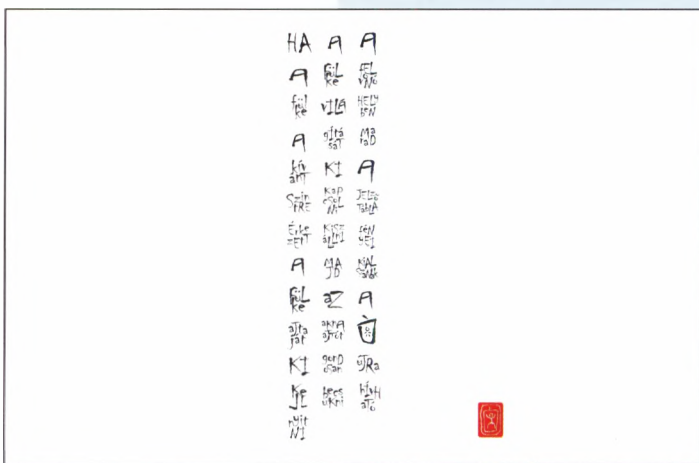 HA A fülke A kívánT SzinTRE ÉrkezEtT A FüLke ajtajat KI KeLL nyitNI
A FüLke vILÁ gítáSaT KI KapcSolNi KiszálLnI MAJD aZ aknA ajtót gonDosan becsukni
A HELYbeN MaraD A JELzőTáblA féNyEI KiALszanak A ujRa hívHaTó